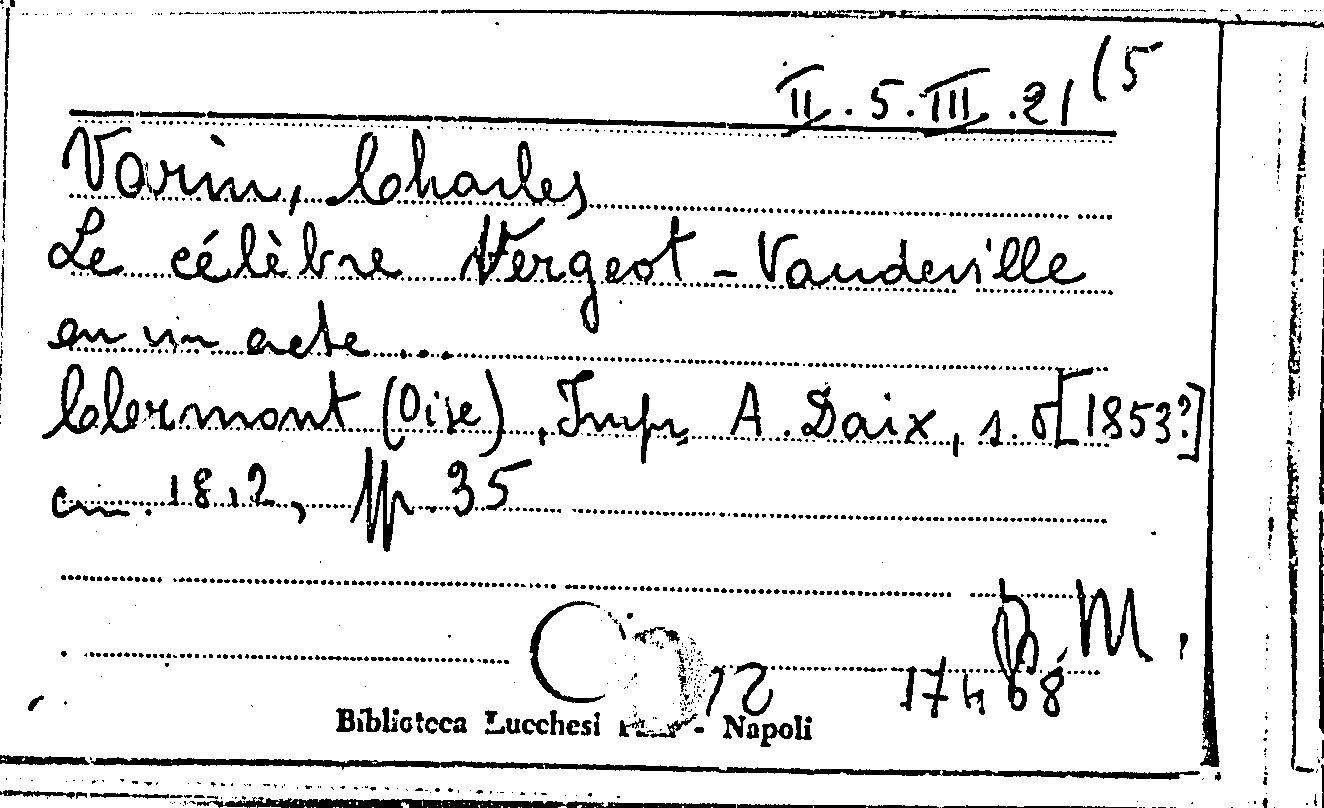 II.5.III.21(5
Varin, Charles
Le célèbre Vergeot - Vaudeville
en un acte...
Clermont (Oise), Imp. A. Daix, s.d[1853?]
cm. 18,2, pp. 35
B.M.
12 17468
Biblioteca Lucchesi - Napoli